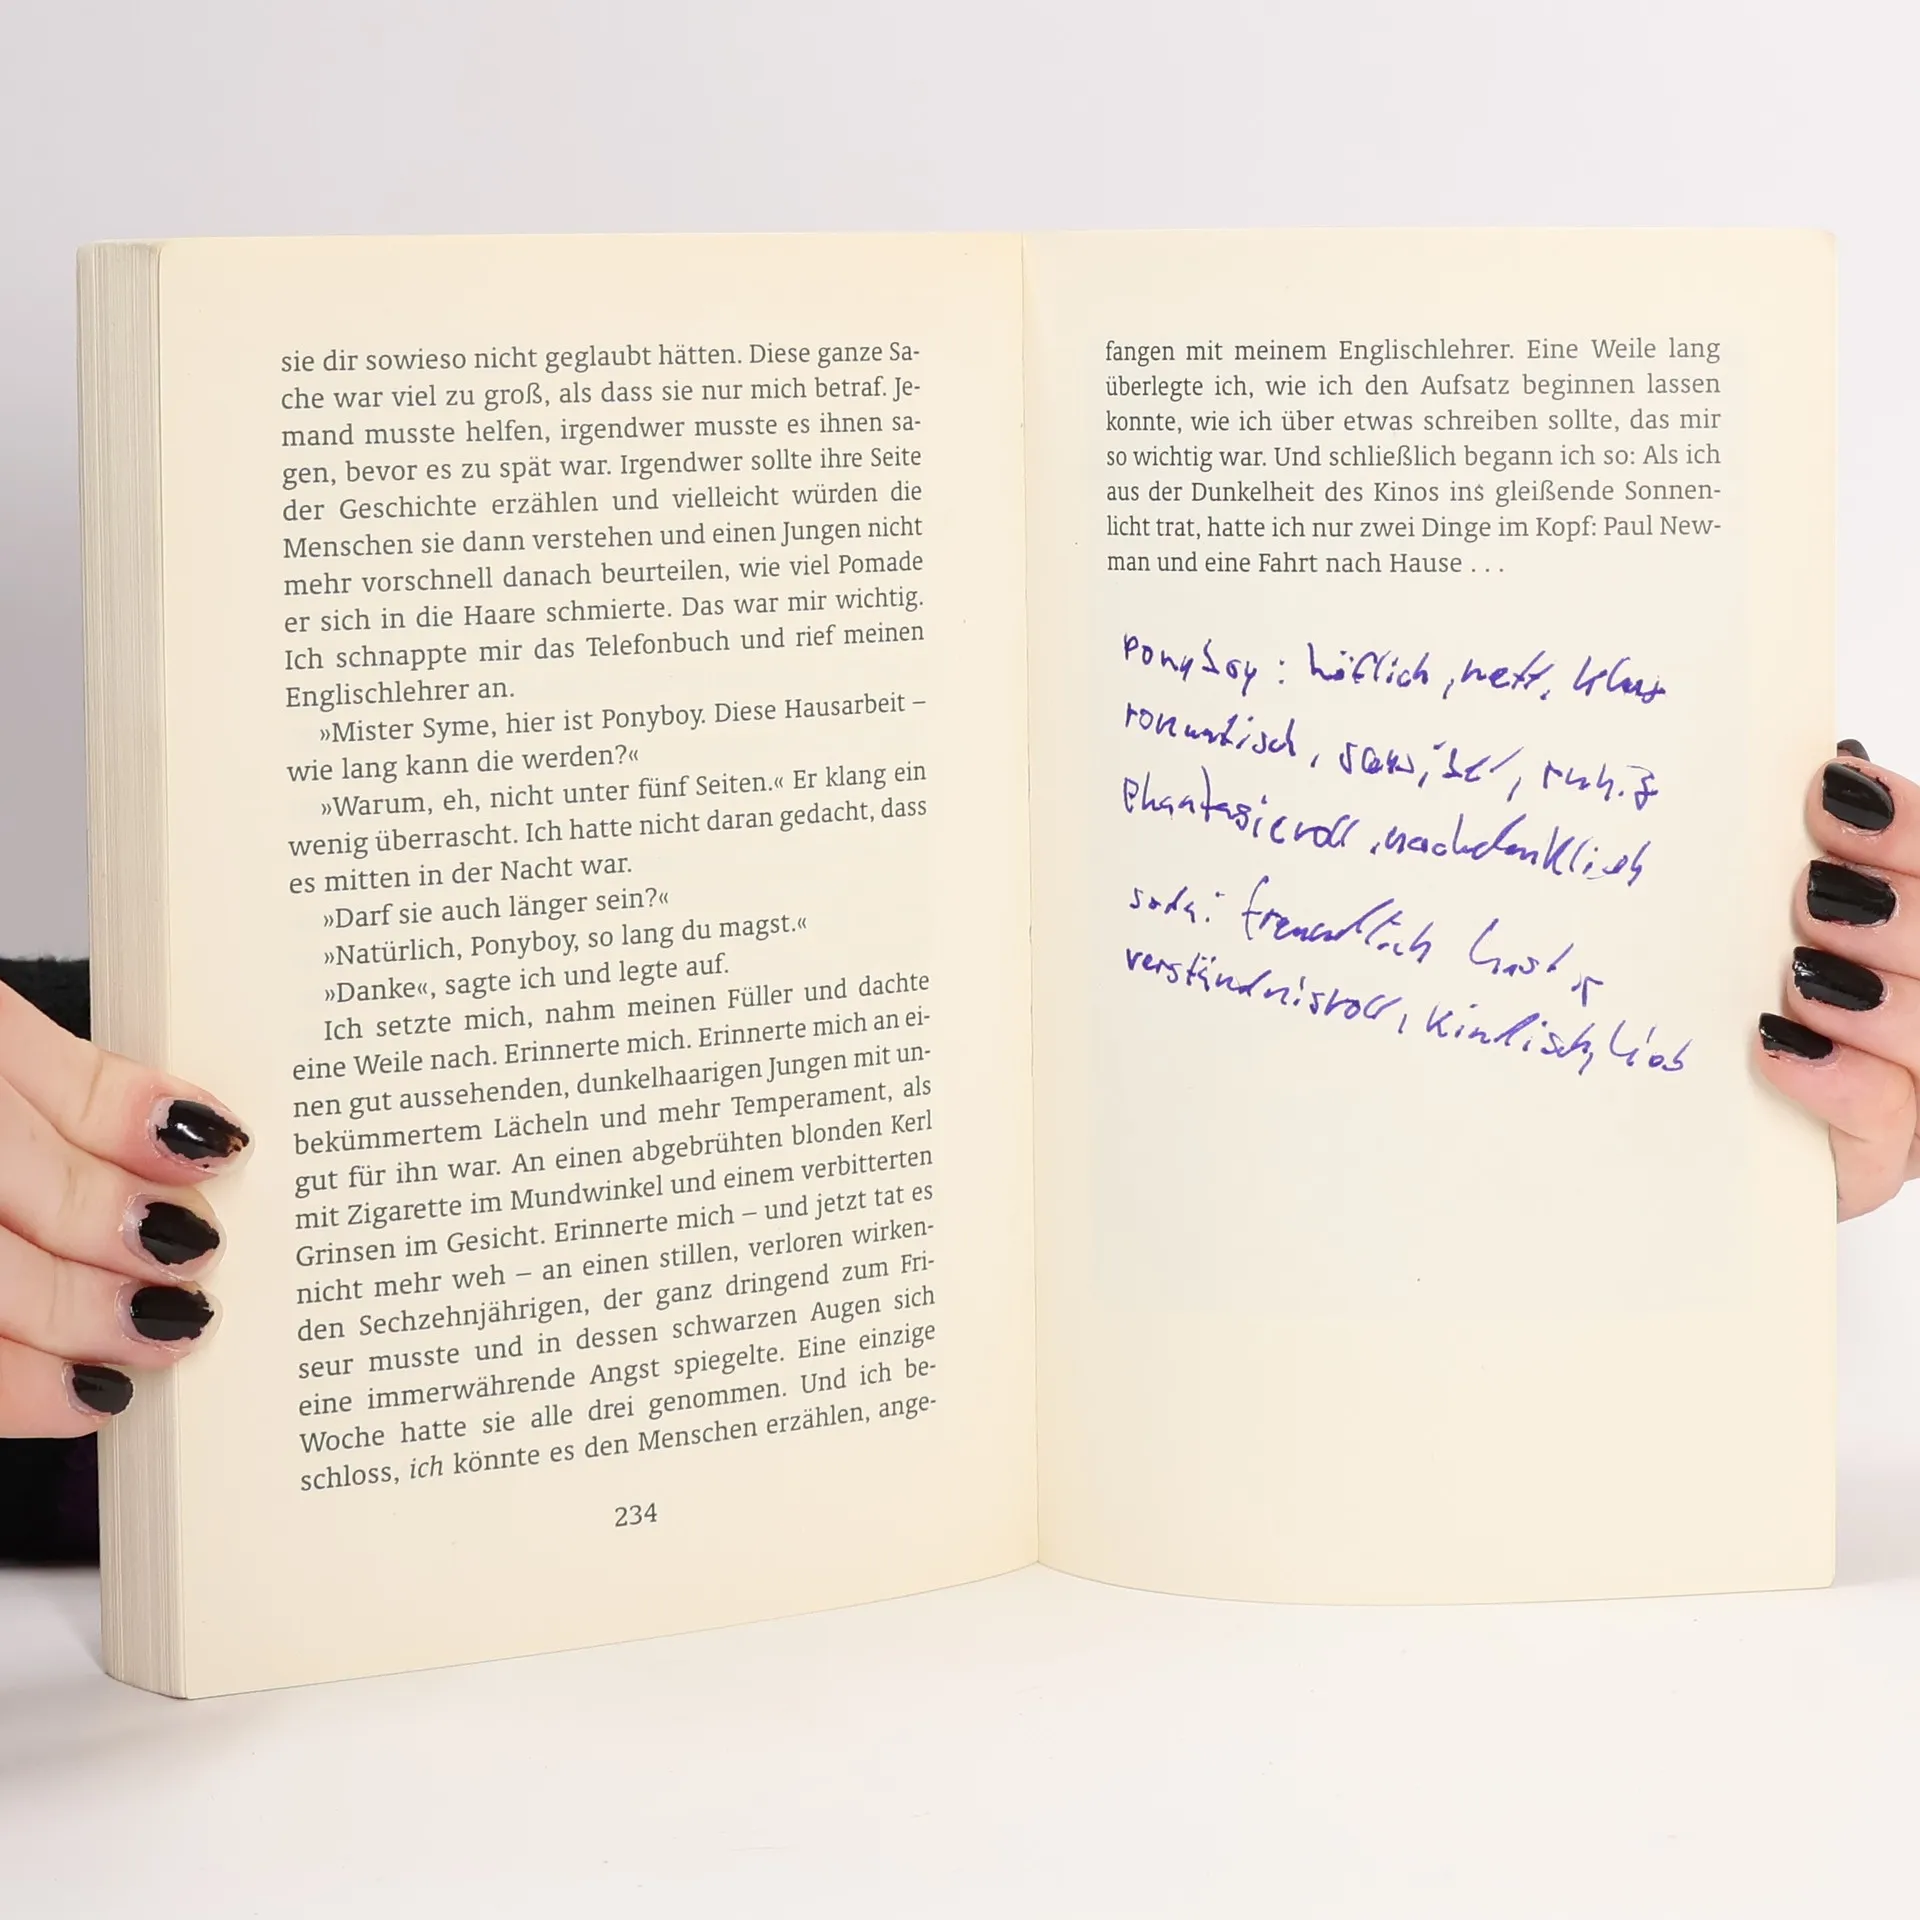 sie dir sowieso nicht geglaubt hätten. Diese ganze Sa-
che war viel zu groß, als dass sie nur mich betraf. Je-
mand musste helfen, irgendwer musste es ihnen sa-
gen, bevor es zu spät war. Irgendwer sollte ihre Seite
der Geschichte erzählen und vielleicht würden die
Menschen sie dann verstehen und einen Jungen nicht
mehr vorschnell danach beurteilen, wie viel Pomade
er sich in die Haare schmierte. Das war mir wichtig.
Ich schnappte mir das Telefonbuch und rief meinen
Englischlehrer an.
»Mister Syme, hier ist Ponyboy. Diese Hausarbeit –
wie lang kann die werden?«
»Warum, eh, nicht unter fünf Seiten.« Er klang ein
wenig überrascht. Ich hatte nicht daran gedacht, dass
es mitten in der Nacht war.
»Darf sie auch länger sein?«
»Natürlich, Ponyboy, so lang du magst.«
»Danke«, sagte ich und legte auf.
Ich setzte mich, nahm meinen Füller und dachte
eine Weile nach. Erinnerte mich. Erinnerte mich an ei-
nen gut aussehenden, dunkelhaarigen Jungen mit un-
bekümmertem Lächeln und mehr Temperament, als
gut für ihn war. An einen abgebrühten blonden Kerl
mit Zigarette im Mundwinkel und einem verbitterten
Grinsen im Gesicht. Erinnerte mich – und jetzt tat es
nicht mehr weh – an einen stillen, verloren wirken-
den Sechzehnjährigen, der ganz dringend zum Fri-
seur musste und in dessen schwarzen Augen sich
eine immerwährende Angst spiegelte. Eine einzige
Woche hatte sie alle drei genommen. Und ich be-
schloss, ich könnte es den Menschen erzählen, ange-
234
fangen mit meinem Englischlehrer. Eine Weile lang
überlegte ich, wie ich den Aufsatz beginnen lassen
konnte, wie ich über etwas schreiben sollte, das mir
so wichtig war. Und schließlich begann ich so: Als ich
aus der Dunkelheit des Kinos ins gleißende Sonnen-
licht trat, hatte ich nur zwei Dinge im Kopf: Paul New-
man und eine Fahrt nach Hause . . .
Ponyboy : höflich, nett,
romantisch, sensibel, ruhig
Phantasievoll, nachdenklich
soda: freundlich
verständnisvoll, kindisch, lieb